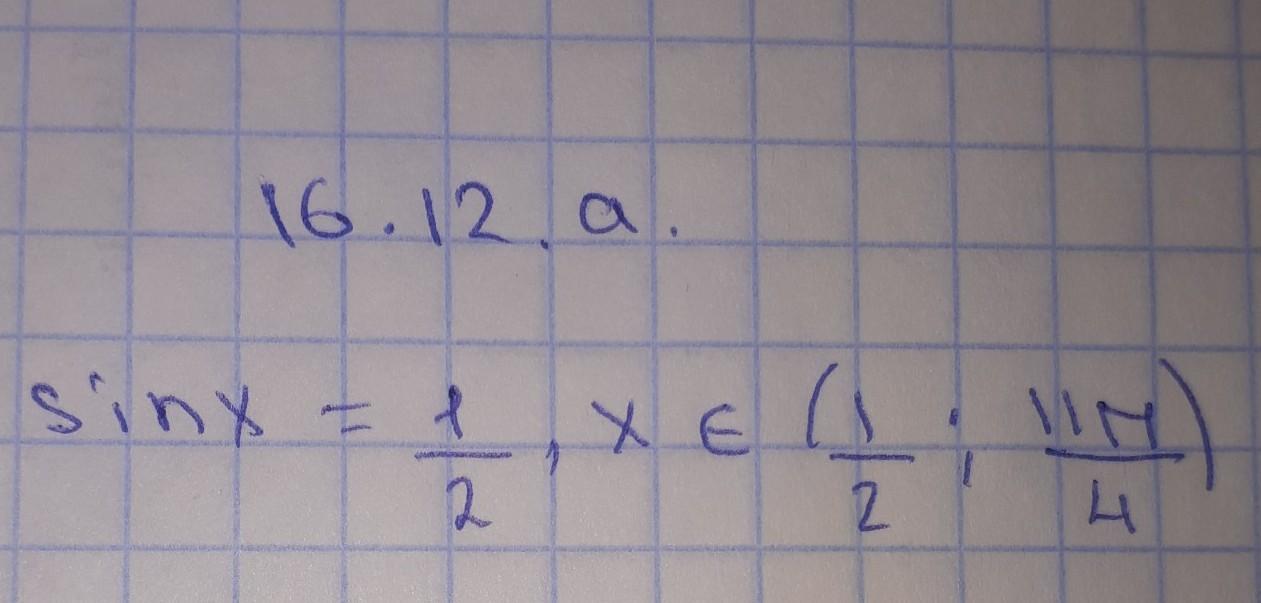 16.12.a.
sinx = 1/2, x ∈ (1/2; 11π/4)